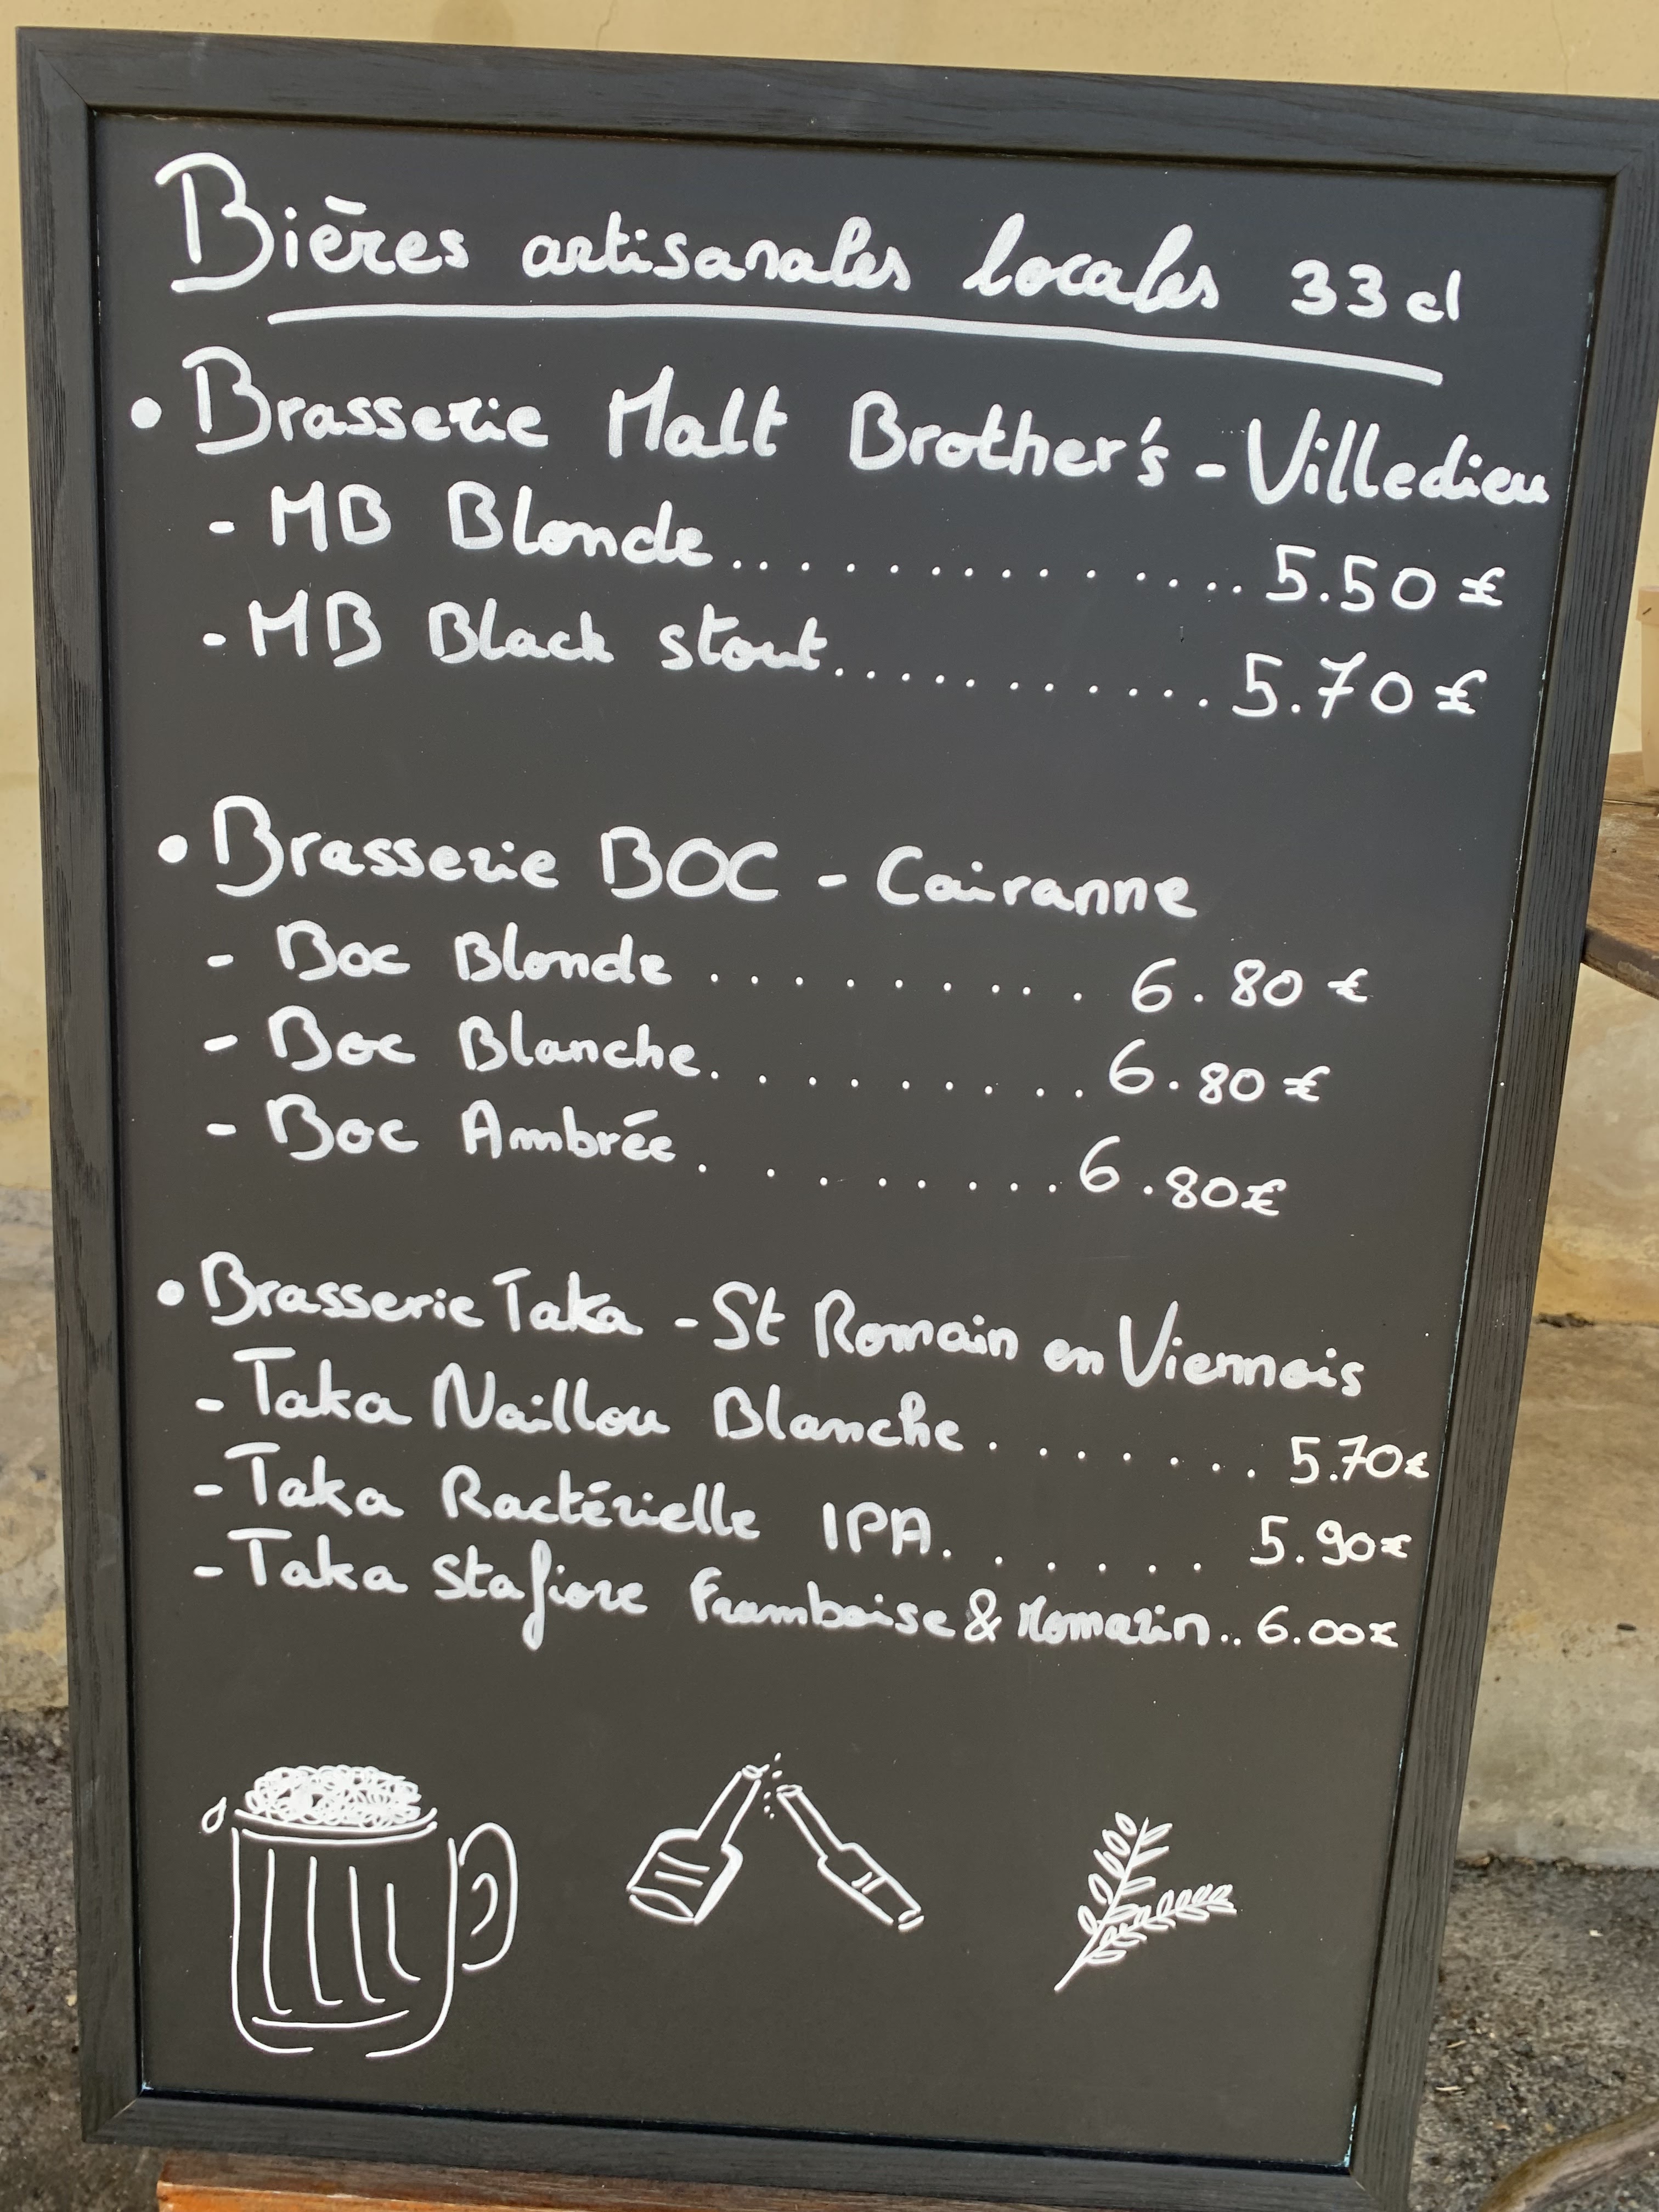 Bières artisanales locales 33 cl
• Brasserie Malt Brother's - Villedieu
- MB Blonde.................5.50 €
- MB Black stout.............5.70 €
• Brasserie BOC - Cairanne
- Boc Blonde .......... 6.80 €
- Boc Blanche..........6.80 €
- Boc Ambrée.........6.80€
• Brasserie Taka - St Romain en Viennois
- Taka Naillou Blanche ....... 5.70€
- Taka Ractérielle IPA....... 5.90€
- Taka Stafiore Framboise & Romarin.. 6.00€